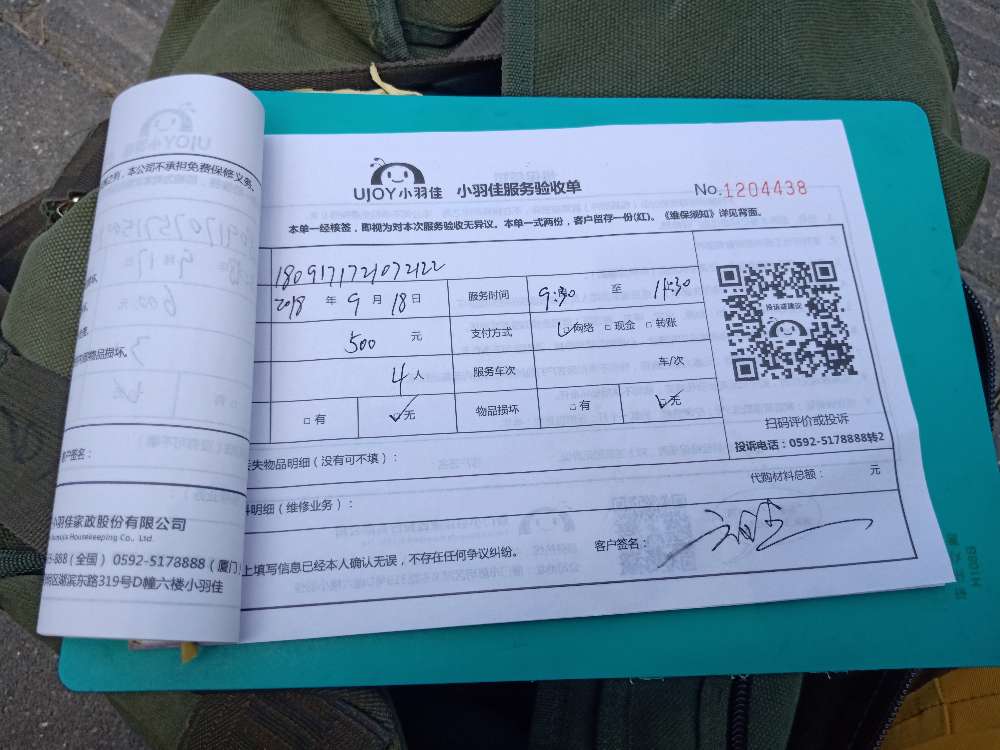 UJOY小羽佳 小羽佳服务验收单 No.1204438
本单一经核签，即视为对本次服务验收无异议。本单一式两份，客户留存一份(红)。《维保须知》详见背面。
1809171721072122
2018 年 9 月 18 日 服务时间 9:30 至 11:30
500 元 支付方式 □网络 □现金 □转账
4 人 服务车次 车/次
□有 □无 物品损坏 □有 □无
投诉或建议
扫码评价或投诉
投诉电话：0592-5178888转2
失物品明细（没有可不填）：
代购材料总额： 元
料明细（维修业务）：
上填写信息已经本人确认无误，不存在任何争议纠纷。
客户签名：
UJOY小羽佳
本公司不承担免费保修义务。
物品损坏。
客户签名：
小羽佳家政股份有限公司
Housekeeping Co., Ltd.
5-888（全国） 0592-5178888（厦门）
明区湖滨东路319号D幢六楼小羽佳